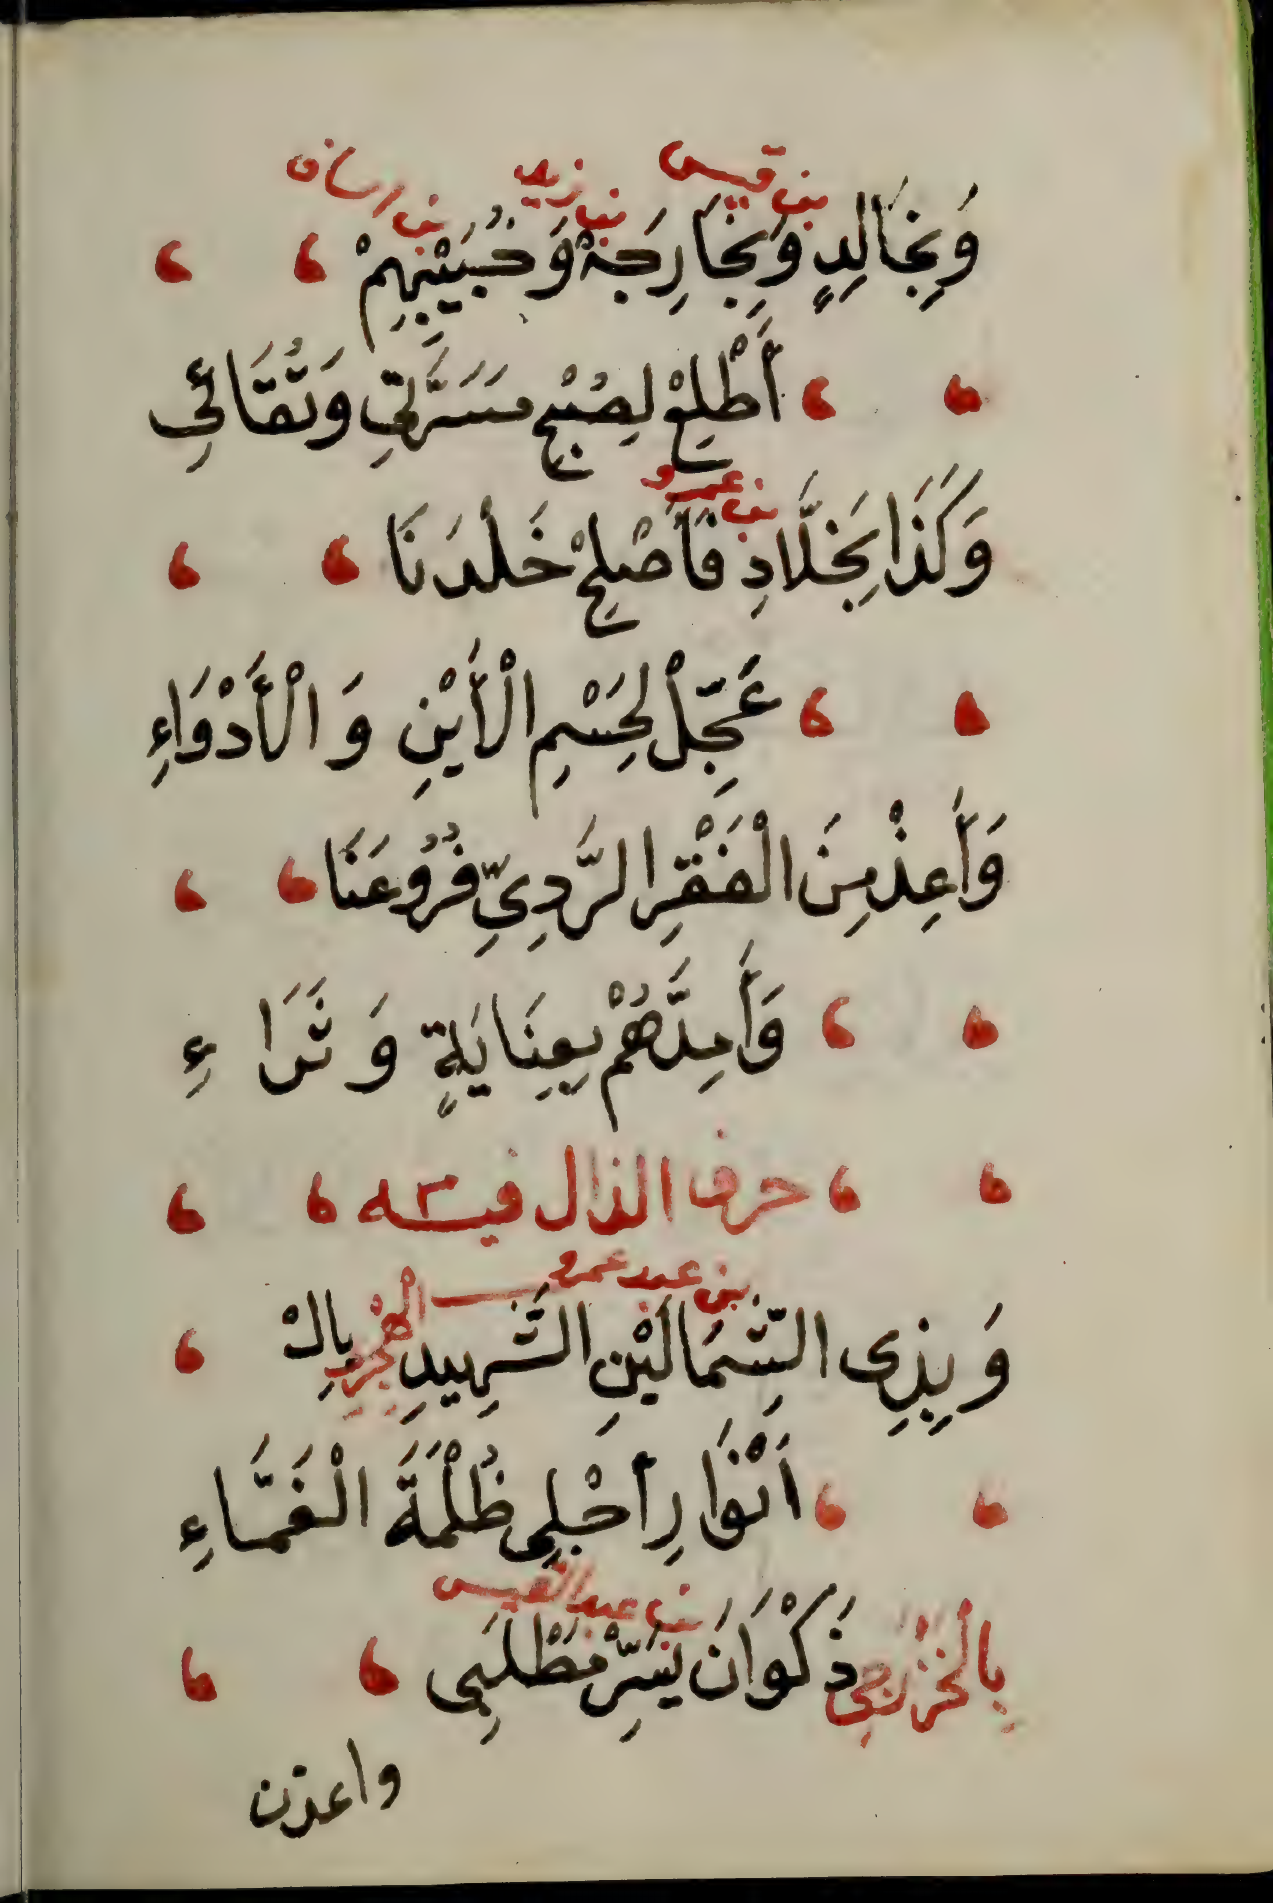 بن قيس بن زيد بن إساف
وَبِخَالِدٍ وَبِخَارِجَةْ وَخُبَيْبِهِمْ
أَطْلِعْ لِصُبْحِ مَسَرَّتِي وَتُقَائِي
بن عمرو
وَكَذَا بِخَلَّادِ فَأَصْلِحْ خَلْدَنَا
عَجِّلْ لِحَسْمِ الْأَيْنِ وَالْأَدْوَاءِ
وَأَعِذْ مِنَ الْفَقْرِ الرَّدِيِّ فُرُوعَنَا
وَأَمِدَّهُمْ بِعِنَايَةٍ وَثَرَاءِ
حرف الذال فيه ٣
بن عبد عمرو
وَبِذِي الشِّمَالَيْنِ الشَّهِيدِ الْمُهْجِرِي بِالْ
أَنْوَارِ أَجْلِى ظُلْمَةَ الْغَمَّاءِ
بن عبد القيس
بِالْخَزْرَجِي ذَكْوَانَ يَسِّرْ مَطْلَبِى
واعذن